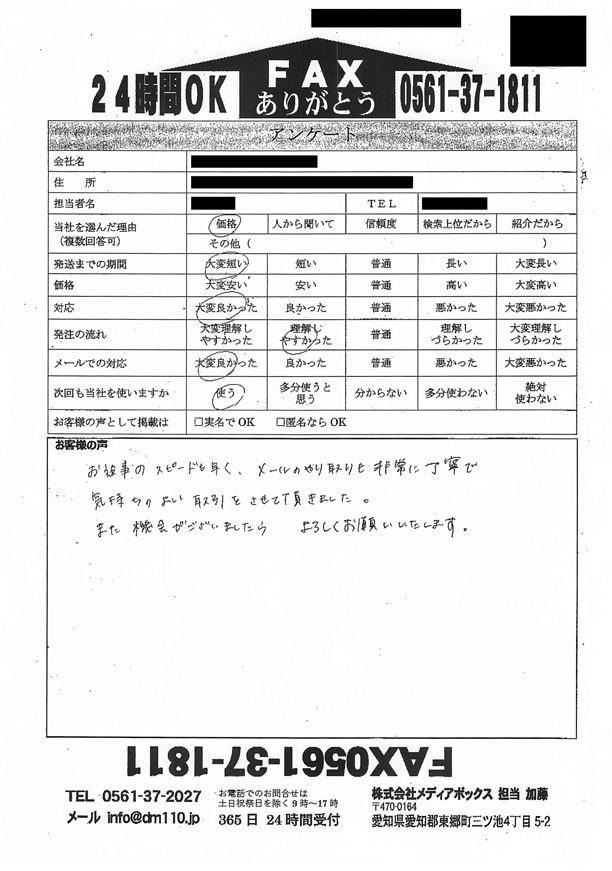 24時間OK
FAX
ありがとう
0561-37-1811
アンケート
会社名
住 所
担当者名 TEL
当社を選んだ理由
(複数回答可)
価格 人から聞いて 信頼度 検索上位だから 紹介だから
その他 ( )
発送までの期間 大変短い 短い 普通 長い 大変長い
価格 大変安い 安い 普通 高い 大変高い
対応 大変良かった 良かった 普通 悪かった 大変悪かった
発注の流れ 大変理解しやすかった 理解しやすかった 普通 理解しづらかった 大変理解しづらかった
メールでの対応 大変良かった 良かった 普通 悪かった 大変悪かった
次回も当社を使いますか 使う 多分使うと思う 分からない 多分使わない 絶対使わない
お客様の声として掲載は □実名でOK □匿名ならOK
お客様の声
お仕事のスピードも早く、メールのやり取りも非常に丁寧で
気持ちのよい取引をさせて頂きました。
また機会がございましたら よろしくお願いいたします。
FAX0561-37-1811
TEL 0561-37-2027
メール info@dm110.jp
お電話でのお問合せは
土日祝祭日を除く9時～17時
365日 24時間受付
株式会社メディアボックス 担当 加藤
〒470-0164
愛知県愛知郡東郷町三ツ池4丁目 5-2